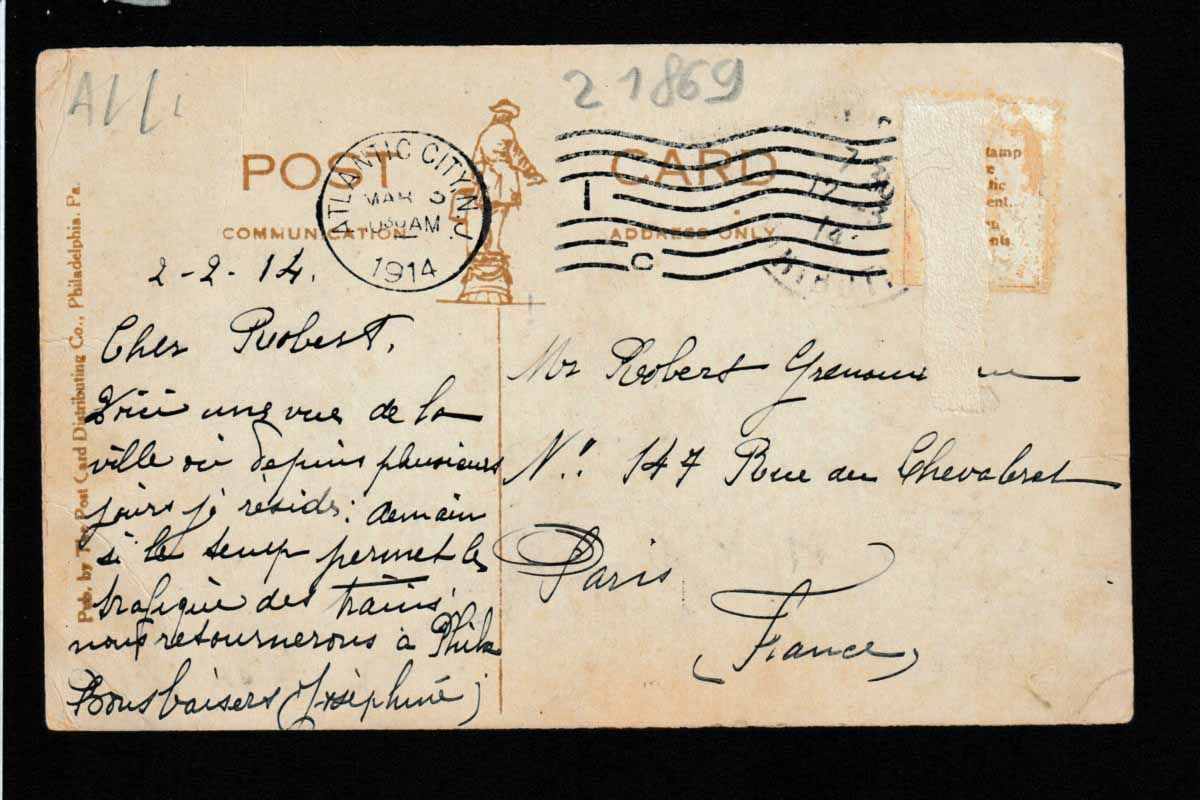 21869
POST CARD
COMMUNICATION
ADDRESS ONLY
ATLANTIC CITY, N.J.
MAR 3
1030 AM
1914
1
C
Pub. by The Post Card Distributing Co., Philadelphia. Pa.
2-2-14.
Cher Robert,
Voici une vue de la
ville où depuis plusieurs
jours je réside: demain
si le temp permet le
trafique des trains,
nous retournerons à Phila
Bons baisers Joséphine
Mr Robert
N: 147 Rue du Chevaleret
Paris
(France)